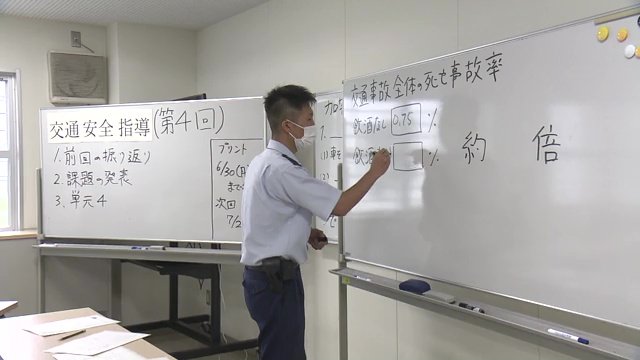 交通安全指導(第4回)
1.前回の振り返り
2.課題の発表
3.単元4
プリント
6/30(月)
まで
次回
7/2
交通事故全体の死亡事故率
飲酒なし 0.75 %
飲酒 %
約 倍